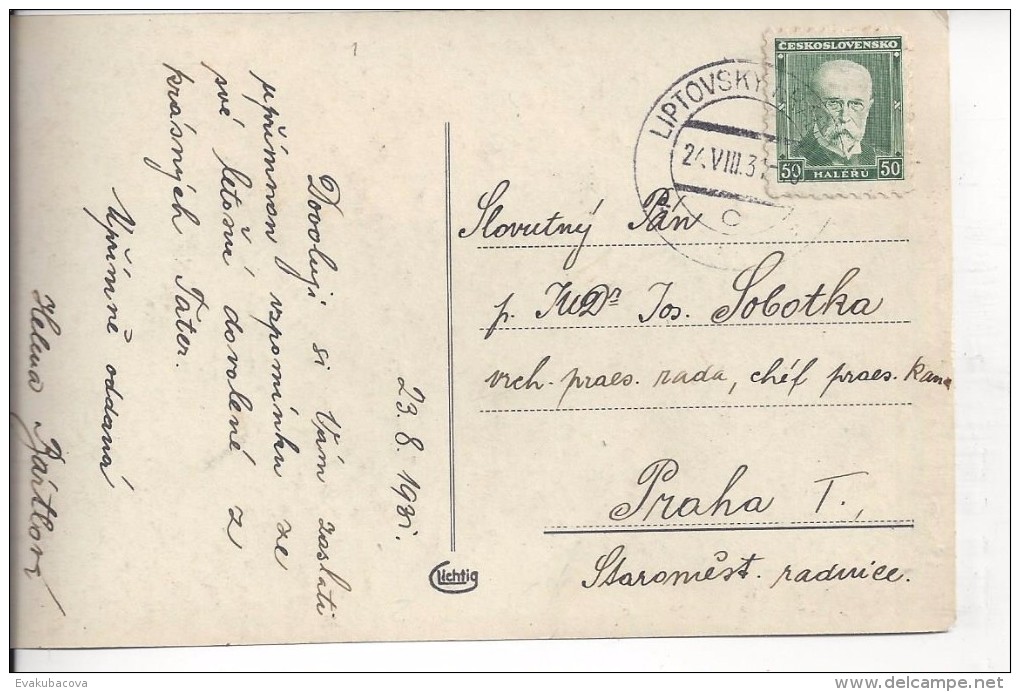 23. 8. 1931.
Dovoluji si Vám zaslati
upřímnou vzpomínku ze
své letošní dovolené z
krásných Tater.
Upřímně oddaná
Helena Bártlová.
ČESKOSLOVENSKO
50 HALÉŘŮ 50
LIPTOVSKÝ
24.VIII.31
C
Slovutný Pán
p. JUDr Jos. Sobotka
vrch. praes. rada, chéf praes. kanc
Praha I.,
Staroměst. radnice.
Lichtig
Evakubacova
delcampe.net